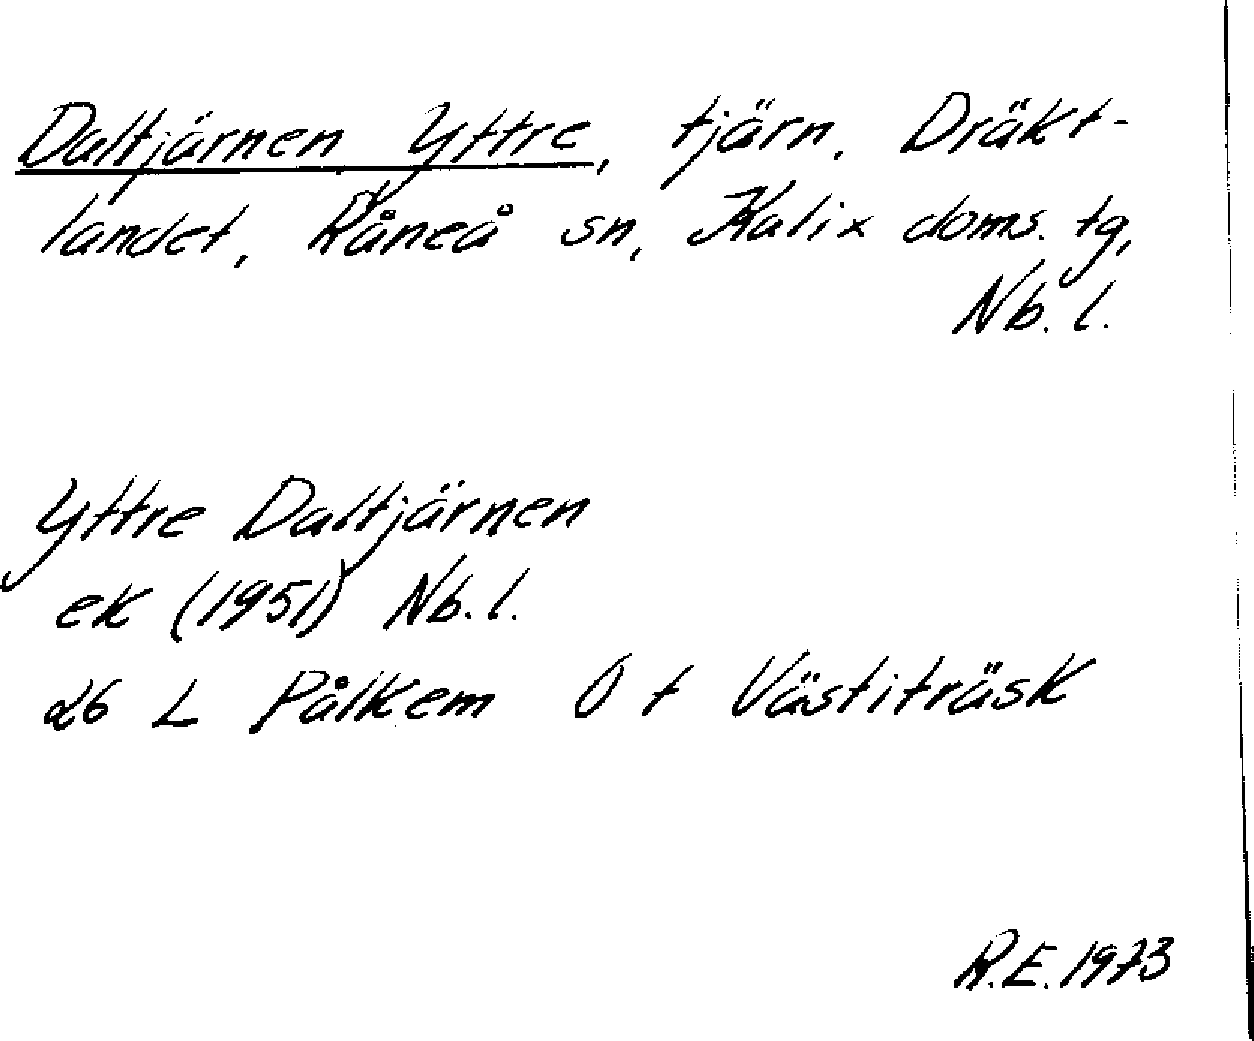 Daltjärnen Yttre, tjärn. Dräkt-
landet, Råneå sn, Kalix doms. tg,
Nb. l.
Yttre Daltjärnen
ek (1951) Nb. l.
26 L Pålkem Ö t Västiträsk
R.E. 1973